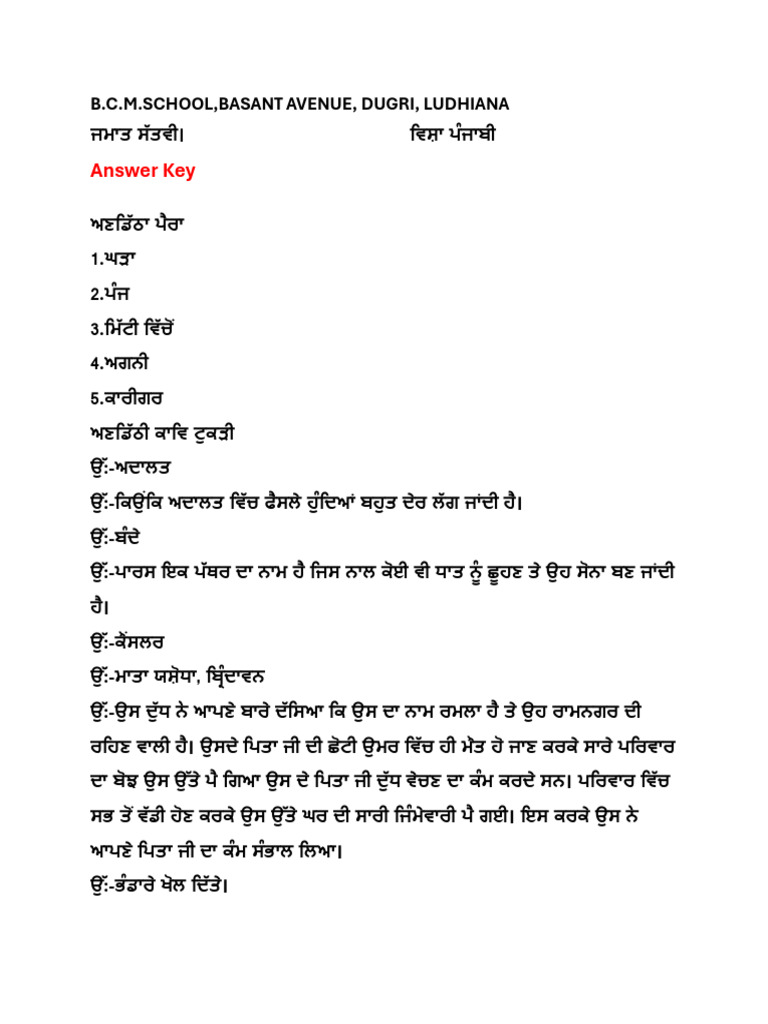 B.C.M.SCHOOL,BASANT AVENUE, DUGRI, LUDHIANA
ਜਮਾਤ ਸੱਤਵੀ। ਵਿਸ਼ਾ ਪੰਜਾਬੀ
Answer Key
ਅਣਡਿੱਠਾ ਪੈਰਾ
1.ਘੜਾ
2.ਪੰਜ
3.ਮਿੱਟੀ ਵਿੱਚੋਂ
4.ਅਗਨੀ
5.ਕਾਰੀਗਰ
ਅਣਡਿੱਠੀ ਕਾਵਿ ਟੁਕੜੀ
ਉੱ:-ਅਦਾਲਤ
ਉੱ:-ਕਿਉਂਕਿ ਅਦਾਲਤ ਵਿੱਚ ਫੈਸਲੇ ਹੁੰਦਿਆਂ ਬਹੁਤ ਦੇਰ ਲੱਗ ਜਾਂਦੀ ਹੈ।
ਉੱ:-ਬੰਦੇ
ਉੱ:-ਪਾਰਸ ਇਕ ਪੱਥਰ ਦਾ ਨਾਮ ਹੈ ਜਿਸ ਨਾਲ ਕੋਈ ਵੀ ਧਾਤ ਨੂੰ ਛੂਹਣ ਤੇ ਉਹ ਸੋਨਾ ਬਣ ਜਾਂਦੀ
ਹੈ।
ਉੱ:-ਕੈਂਸਲਰ
ਉੱ:-ਮਾਤਾ ਯਸ਼ੋਧਾ, ਬ੍ਰਿੰਦਾਵਨ
ਉੱ:-ਉਸ ਦੁੱਧ ਨੇ ਆਪਣੇ ਬਾਰੇ ਦੱਸਿਆ ਕਿ ਉਸ ਦਾ ਨਾਮ ਰਮਲਾ ਹੈ ਤੇ ਉਹ ਰਾਮਨਗਰ ਦੀ
ਰਹਿਣ ਵਾਲੀ ਹੈ। ਉਸਦੇ ਪਿਤਾ ਜੀ ਦੀ ਛੋਟੀ ਉਮਰ ਵਿੱਚ ਹੀ ਮੌਤ ਹੋ ਜਾਣ ਕਰਕੇ ਸਾਰੇ ਪਰਿਵਾਰ
ਦਾ ਬੋਝ ਉਸ ਉੱਤੇ ਪੈ ਗਿਆ ਉਸ ਦੇ ਪਿਤਾ ਜੀ ਦੁੱਧ ਵੇਚਣ ਦਾ ਕੰਮ ਕਰਦੇ ਸਨ। ਪਰਿਵਾਰ ਵਿੱਚ
ਸਭ ਤੋਂ ਵੱਡੀ ਹੋਣ ਕਰਕੇ ਉਸ ਉੱਤੇ ਘਰ ਦੀ ਸਾਰੀ ਜਿੰਮੇਵਾਰੀ ਪੈ ਗਈ। ਇਸ ਕਰਕੇ ਉਸ ਨੇ
ਆਪਣੇ ਪਿਤਾ ਜੀ ਦਾ ਕੰਮ ਸੰਭਾਲ ਲਿਆ।
ਉੱ:-ਭੰਡਾਰੇ ਖੋਲ ਦਿੱਤੇ।